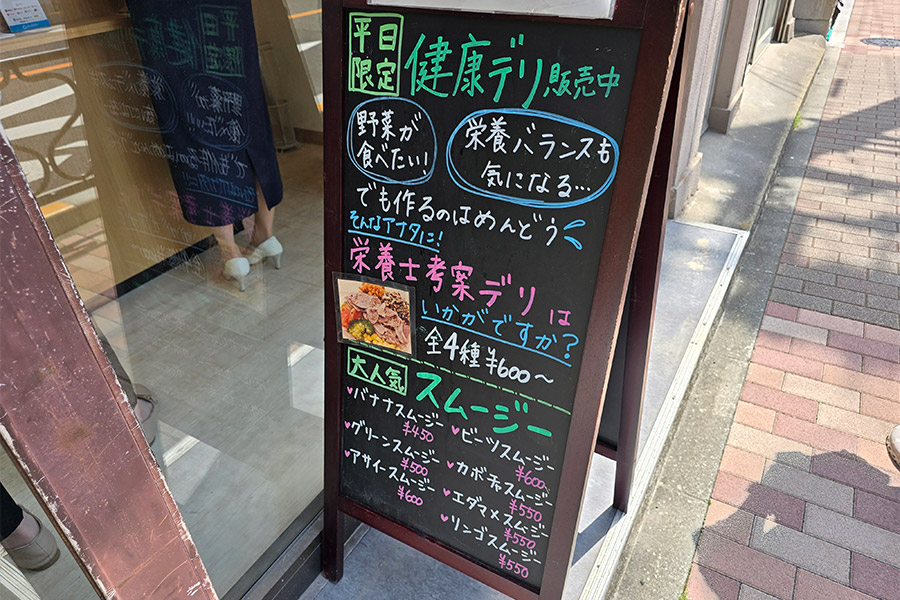 平日
限定
健康デリ販売中
野菜が
食べたい
栄養バランスも
気になる…
でも作るのはめんどう
そんなアナタに!
栄養士考案デリは
いかがですか?
全4種¥600〜
大人気
スムージー
♥バナナスムージー
¥450
♥グリーンスムージー
¥500
♥アサイースムージー
¥600
♥ビーツスムージー
¥600
♥カボチャスムージー
¥550
♥エダマメスムージー
¥550
♥リンゴスムージー
¥550